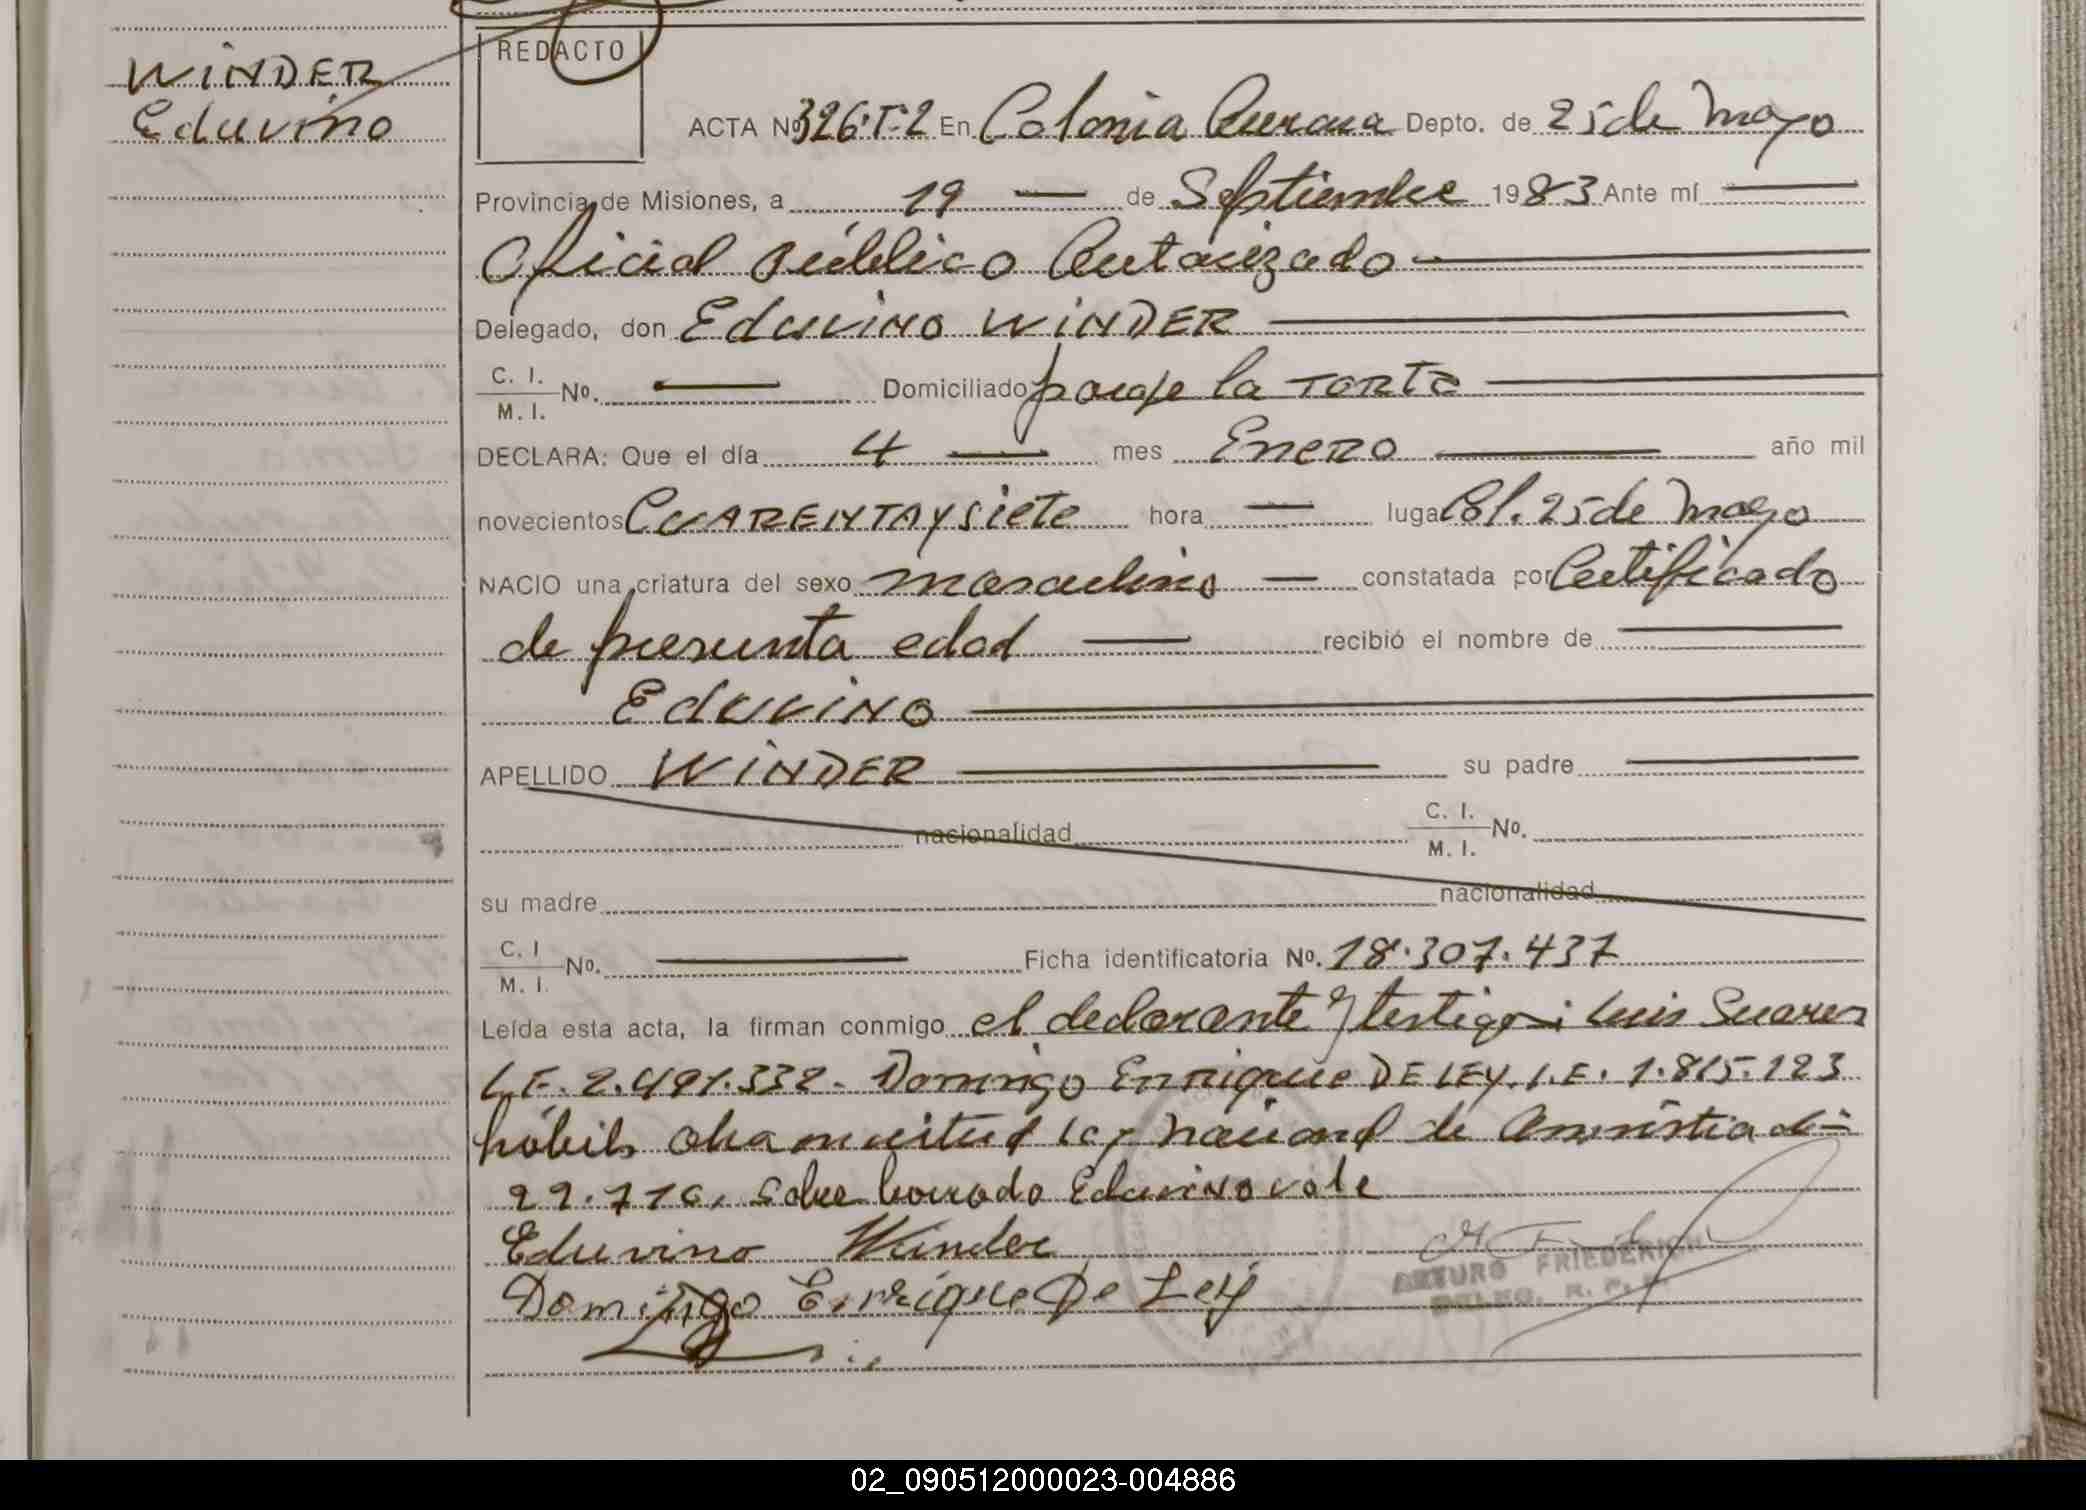 WINDER
Eduvino
REDACTO
ACTA Nº 326·T·2 En Colonia Aurora Depto. de 25 de Mayo
Provincia de Misiones, a 19 — de Septiembre 1983 Ante mí —
Oficial Público Autorizado —
Delegado, don Eduvino WINDER —
C. I.
M. I. No. — Domiciliado paraje la TORTA —
DECLARA: Que el día 4 — mes Enero — año mil
novecientos CUARENTA y siete hora — lugar Col. 25 de Mayo
NACIO una criatura del sexo masculino — constatada por Certificado
de presunta edad — recibió el nombre de —
Eduvino —
APELLIDO WINDER — su padre —
nacionalidad C. I.
M. I. No.
su madre nacionalidad
C. I
M. I. No. — Ficha identificatoria No. 18.307.437
Leída esta acta, la firman conmigo el declarante y testigos: Luis Suarez
L.E. 2.491.332- Domingo Enrique DE LEY. L.E. 1.815.123
hábiles ley Nacional de Amnistia
sobre borrado Eduvino vale
Eduvino Winder
Domingo Enrique De Ley
ARTURO FRIEDERICH
02_090512000023-004886